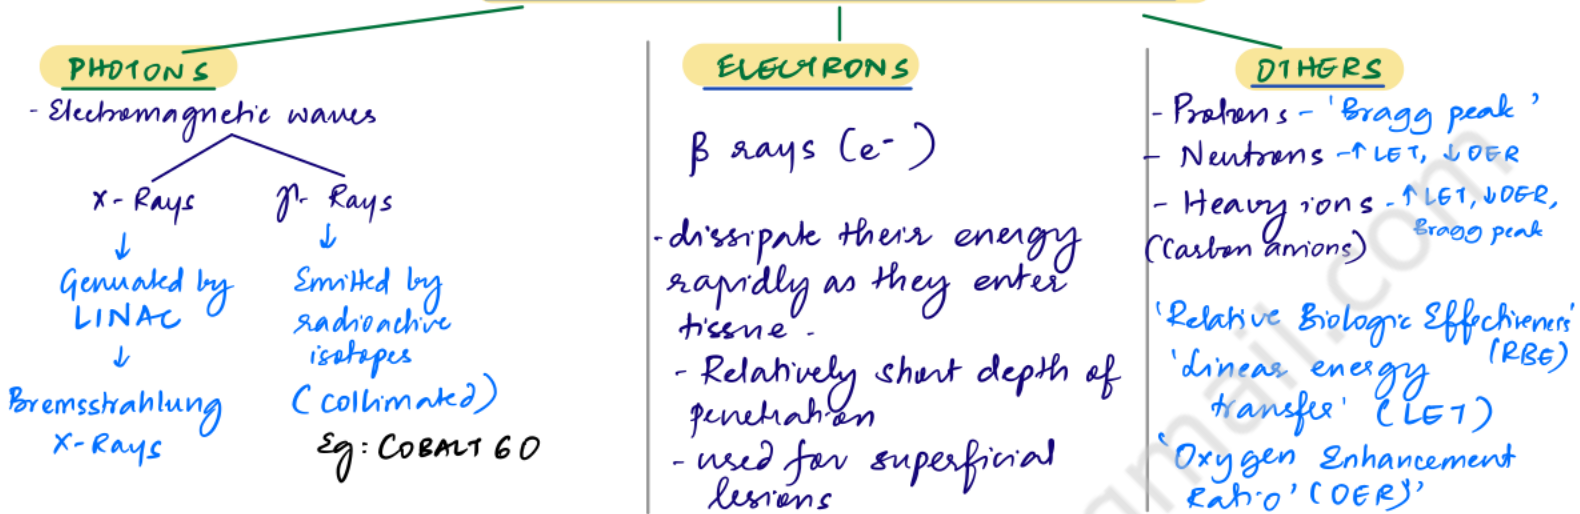 PHOTONS
- Electromagnetic waves
X-Rays
γ- Rays
↓
Genuated by
LINAC
↓
Bremsstrahlung
X-Rays
↓
Emitted by
radioactive
isotopes
(collimated)
Eg: COBALT 60
ELECTRONS
β rays (e-)
- dissipate their energy
rapidly as they enter
tissue -
- Relatively short depth of
penetration
- used for superficial
lesions
OTHERS
- Protons - 'Bragg peak'
- Neutrons - ↑ LET, ↓ OER
- Heavy ions - ↑ LET, ↓ OER,
Bragg peak
(Carbon anions)
'Relative Biologic Effectiveness'
(RBE)
'Linear energy
transfer' (LET)
'Oxygen Enhancement
Ratio' (OER)'
gmail.com